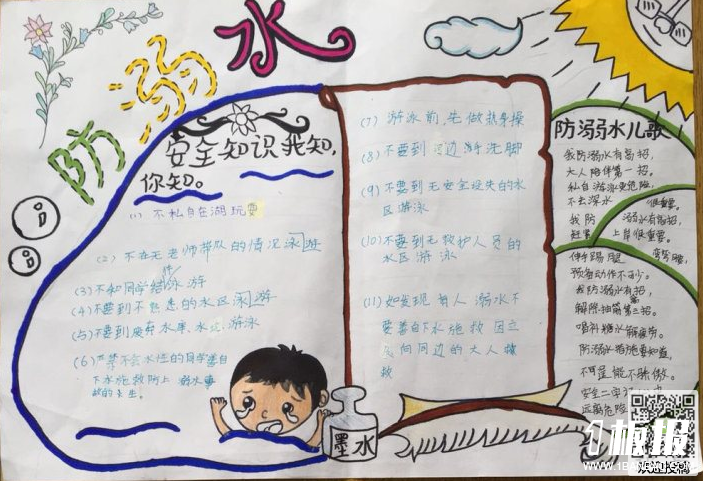 防溺水
安全知识我知,
你知。
(1) 不私自在湖玩耍
(2) 不在无老师带队的情况泳游
(3) 不和同学结伴泳游
(4) 不要到不熟悉的水区泳游
(5) 不要到废弃水库、水 游泳
(6) 严禁不会水性的同学擅自
下水施救防上 溺水事
故的 生。
(7) 游泳前,先做热身操
(8) 不要到河边游洗脚
(9) 不要到无安全设失的水
区游泳
(10) 不要到无救护人员的
水区游泳
(11) 如发现有人溺水不
要善自下水施救因立
向周边的大人
救
墨水
防溺水儿歌
我防溺水有高招,
大人陪伴第一招。
私自游泳更危险,
不去深水 很重要。
我防 溺水有高招,
赶紧 上岸很重要。
伸手踢腿 弯弯腰,
预备动作不可少。
我防溺水有招,
解除抽筋第三招。
喝杯糖水解疲劳。
防溺水措施要知道,
不可逞能不骄傲。
安全二字
远离危险
1板报
WWW.1BANBAO.COM
欢迎投稿